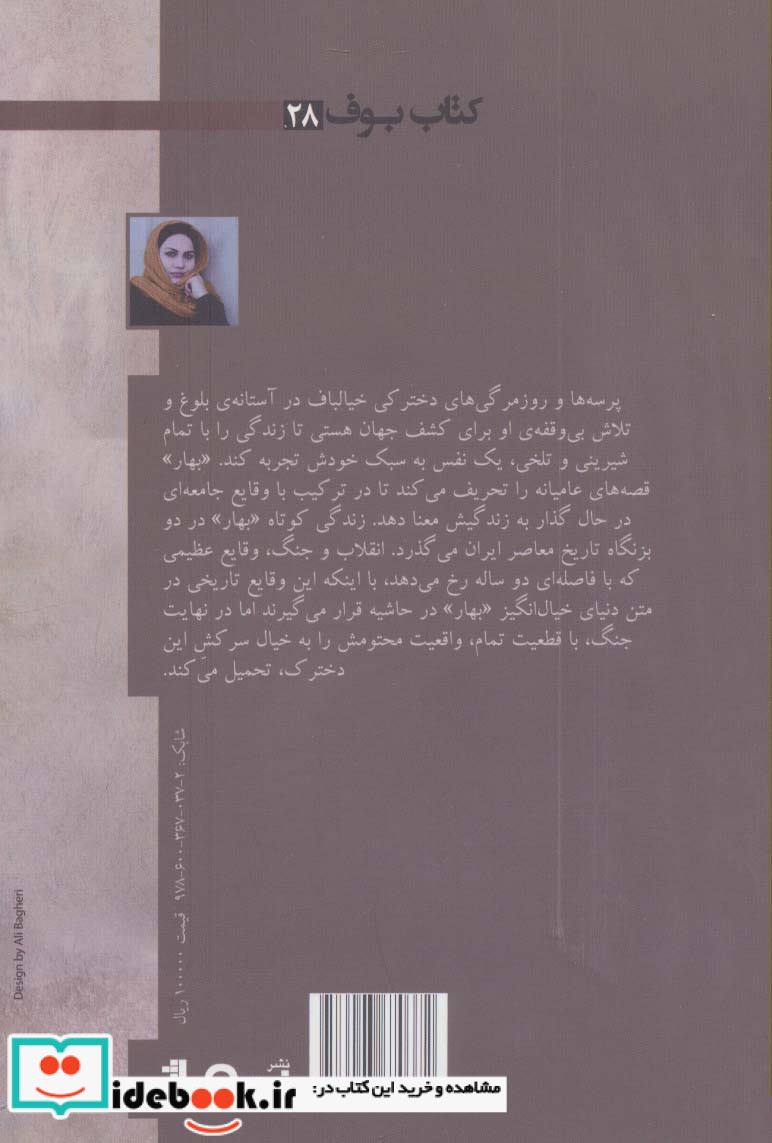 کتاب بوف ۲۸
پرسه‌ها و روزمرگی‌های دخترکی خیالباف در آستانه‌ی بلوغ و
تلاش بی‌وقفه‌ی او برای کشف جهان هستی تا زندگی را با تمام
شیرینی و تلخی، یک نفس به سبک خودش تجربه کند. «بهار»
قصه‌های عامیانه را تحریف می‌کند تا در ترکیب با وقایع جامعه‌ای
در حال گذار به زندگیش معنا دهد. زندگی کوتاه «بهار» در دو
بزنگاه تاریخ معاصر ایران می‌گذرد. انقلاب و جنگ، وقایع عظیمی
که با فاصله‌ای دو ساله رخ می‌دهد، با اینکه این وقایع تاریخی در
متن دنیای خیال‌انگیز «بهار» در حاشیه قرار می‌گیرند اما در نهایت
جنگ، با قطعیت تمام، واقعیت محتومش را به خیال سرکشِ این
دخترک، تحمیل می‌کند.
شابک: ۲-۰۳۷-۳۶۷-۶۰۰-۹۷۸ قیمت ۱۰۰۰۰۰ ریال
Design by Ali Bagheri
نشر
مشاهده و خرید این کتاب در:
idebook.ir